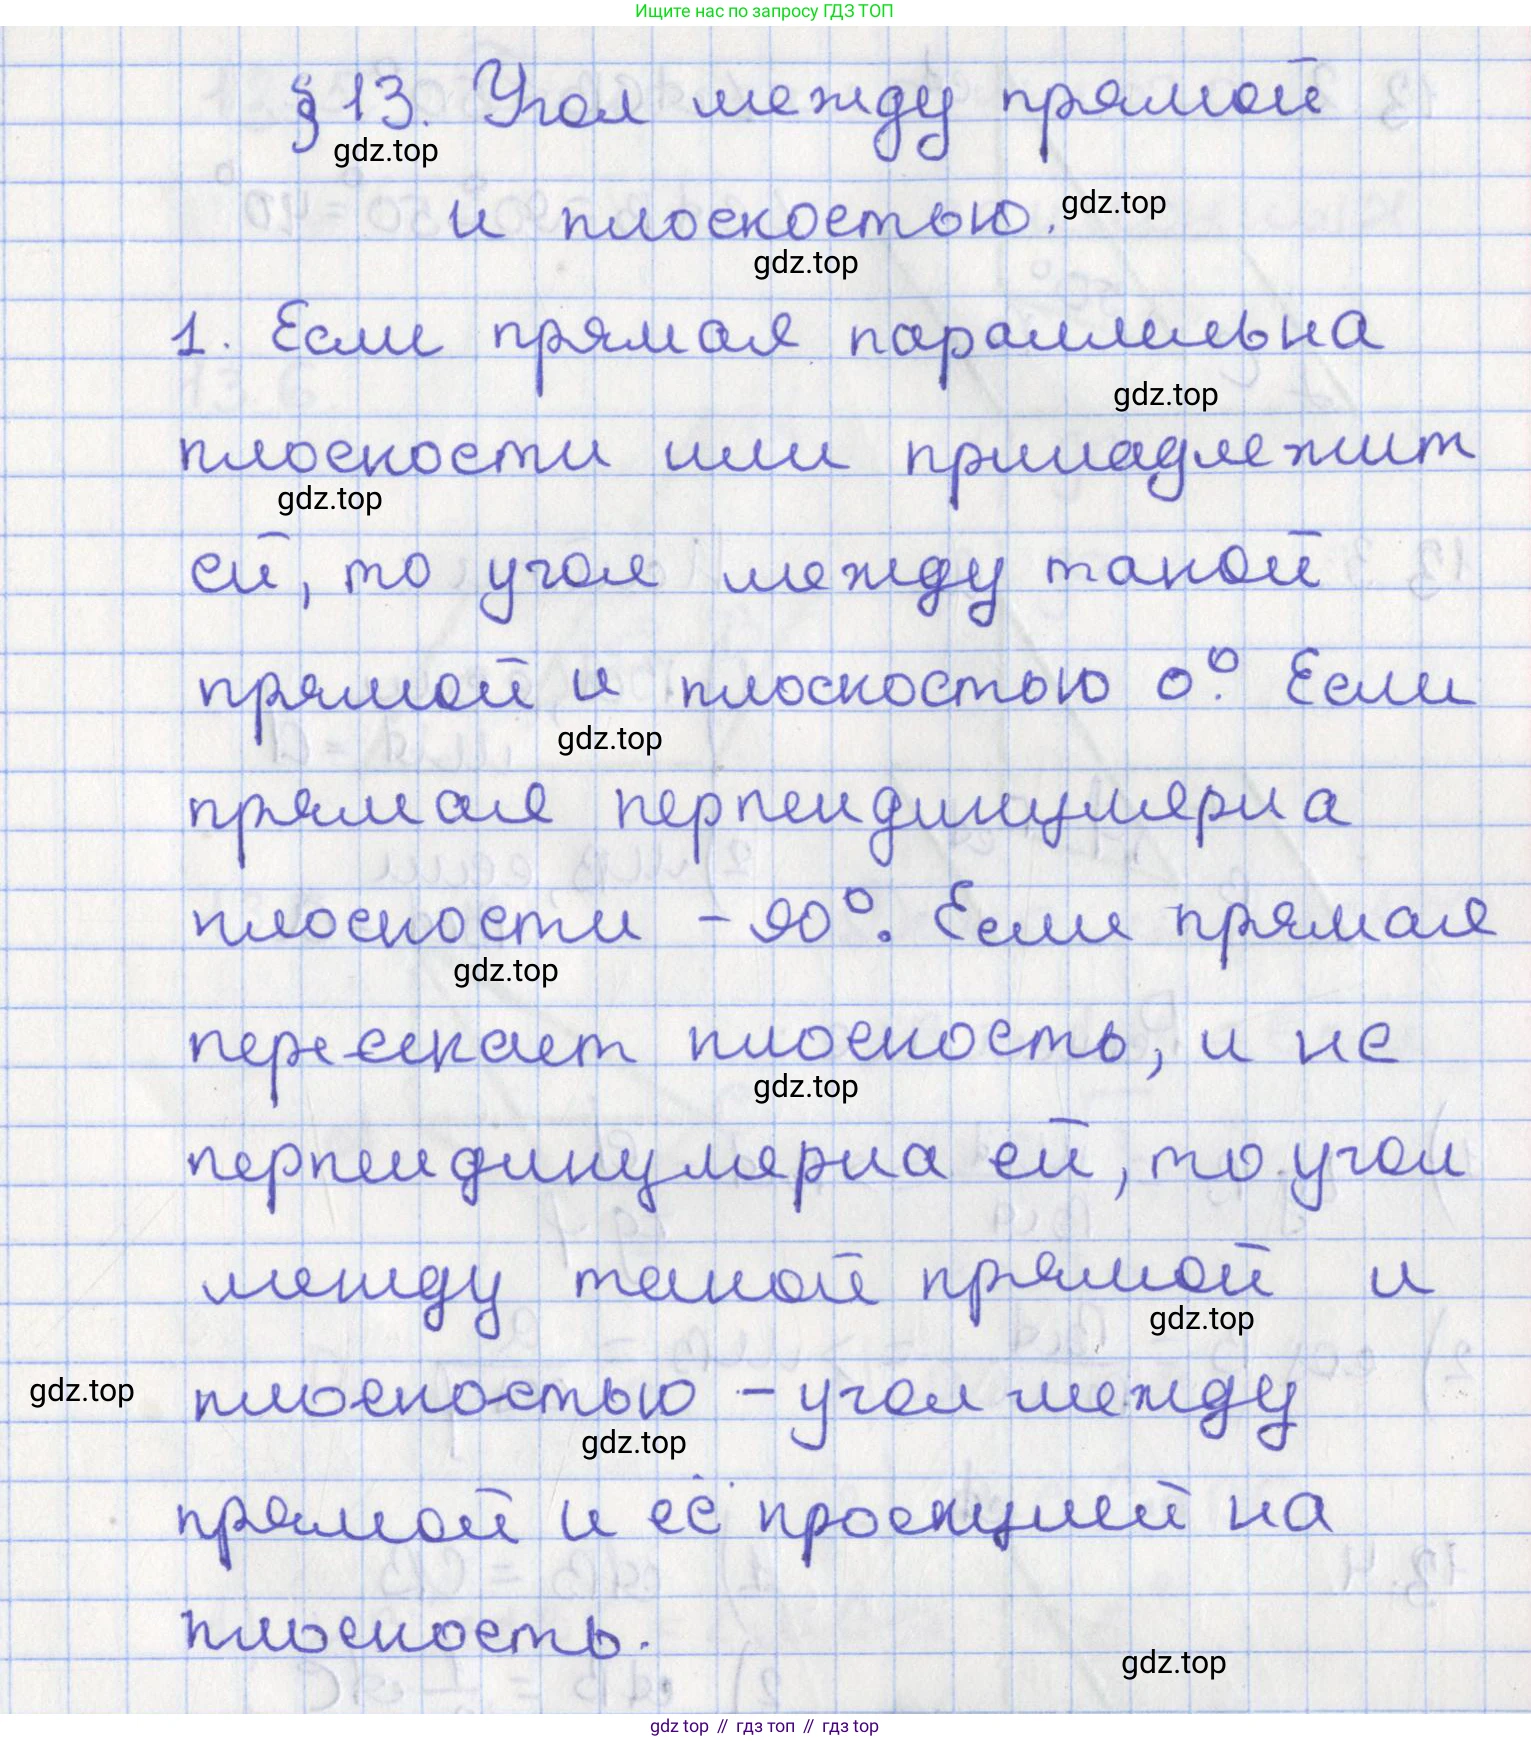 Ищите нас по запросу ГДЗ ТОП
§ 13. Угол между прямой
gdz.top
и плоскостью.
gdz.top
gdz.top
1. Если прямая параллельна
gdz.top
плоскости или принадлежит
gdz.top
ей, то угол между такой
прямой и плоскостью 0°. Если
gdz.top
прямая перпендикулярна
плоскости - 90°. Если прямая
gdz.top
пересекает плоскость, и не
gdz.top
перпендикулярна ей, то угол
между такой прямой и
gdz.top
gdz.top
плоскостью - угол между
gdz.top
прямой и её проекцией на
плоскость.
gdz.top
gdz top // гдз топ // гдз top